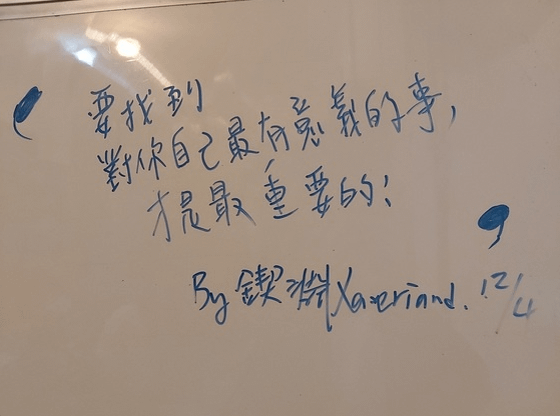 要找到
對你自己最有意義的事,
才是最重要的!
By 鍥淵 Xaveriand. 12/4